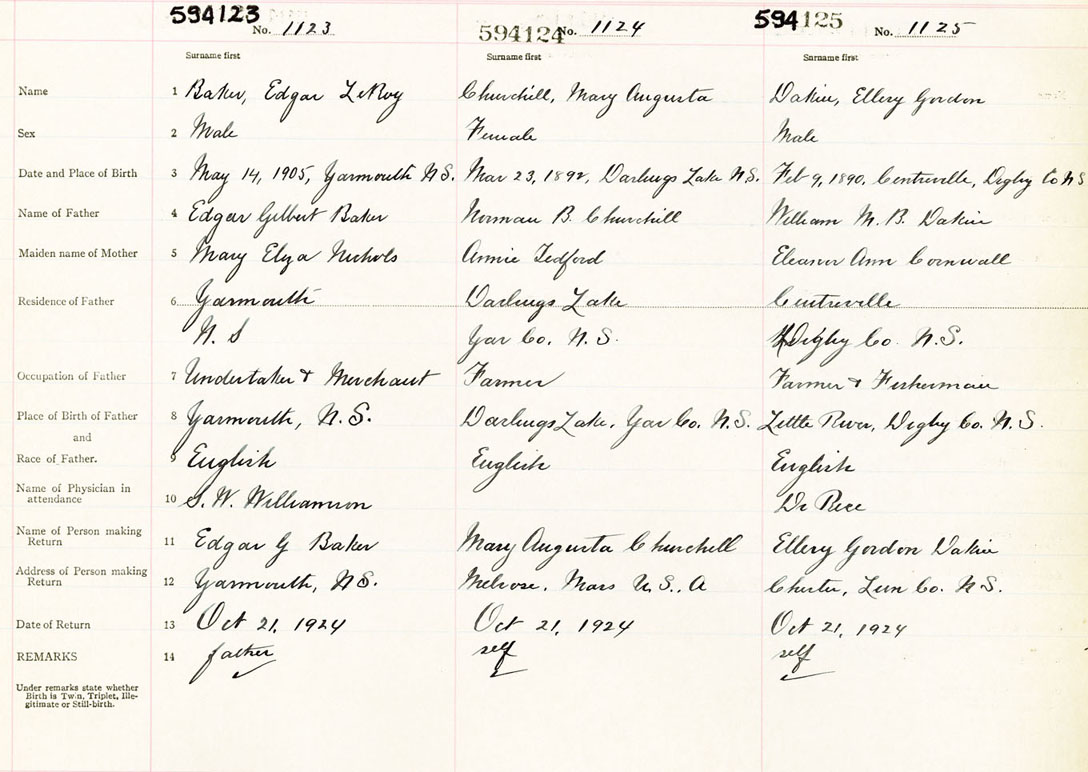 594123 594124 594125
No. 1123 No. 1124 No. 1125
Surname first Surname first Surname first
Name 1 Baker, Edgar LeRoy Churchill, Mary Augusta Dakin, Ellery Gordon
Sex 2 Male Female Male
Date and Place of Birth 3 May 14, 1905, Yarmouth N.S. Mar 23, 1892, Darlings Lake N.S. Feb 9, 1890, Centreville, Digby Co N S
Name of Father 4 Edgar Gilbert Baker Norman B. Churchill William M. B. Dakin
Maiden name of Mother 5 Mary Eliza Nichols Annie Tedford Eleanor Ann Cornwall
Residence of Father 6 Yarmouth Darlings Lake Centreville
N. S Yar Co. N. S. Digby Co. N. S.
Occupation of Father 7 Undertaker & Merchant Farmer Farmer & Fisherman
Place of Birth of Father 8 Yarmouth, N. S. Darlings Lake, Yar Co. N. S. Little River, Digby Co. N. S.
and
Race of Father. 9 English English English
Name of Physician in
attendance 10 S. W. Williamson Dr Rice
Name of Person making
Return 11 Edgar G Baker Mary Augusta Churchill Ellery Gordon Dakin
Address of Person making
Return 12 Yarmouth, N S. Melrose, Mass U. S. A Chester, Lun Co. N S.
Date of Return 13 Oct 21, 1924 Oct 21, 1924 Oct 21, 1924
REMARKS 14 father self self
Under remarks state whether
Birth is Twin, Triplet, Ille-
gitimate or Still-birth.